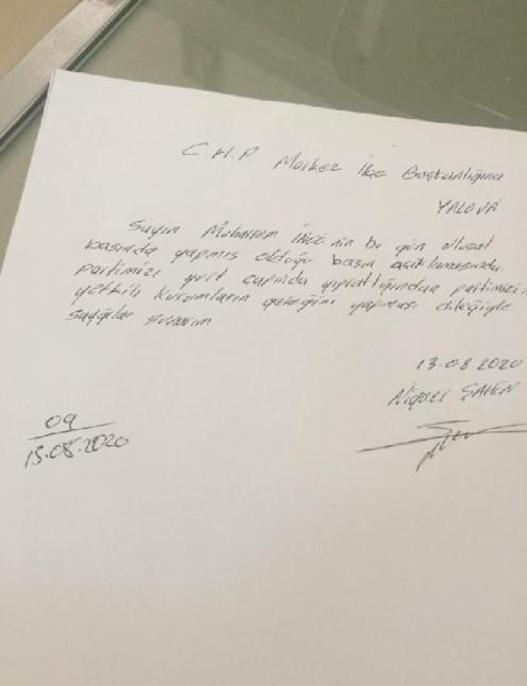 C.H.P Merkez ilçe Başkanlığına
YALOVA
Sayın Muharrem İNCE nin bu gün ulusal
basında yapmış olduğu basın açıklamasında
partimizi yurt çapında yıprattığından partimizin
yetkili kurumların gereğini yapması dileğiyle
saygılar sunarım
13.08.2020
ŞAHİN
09
13.08.2020